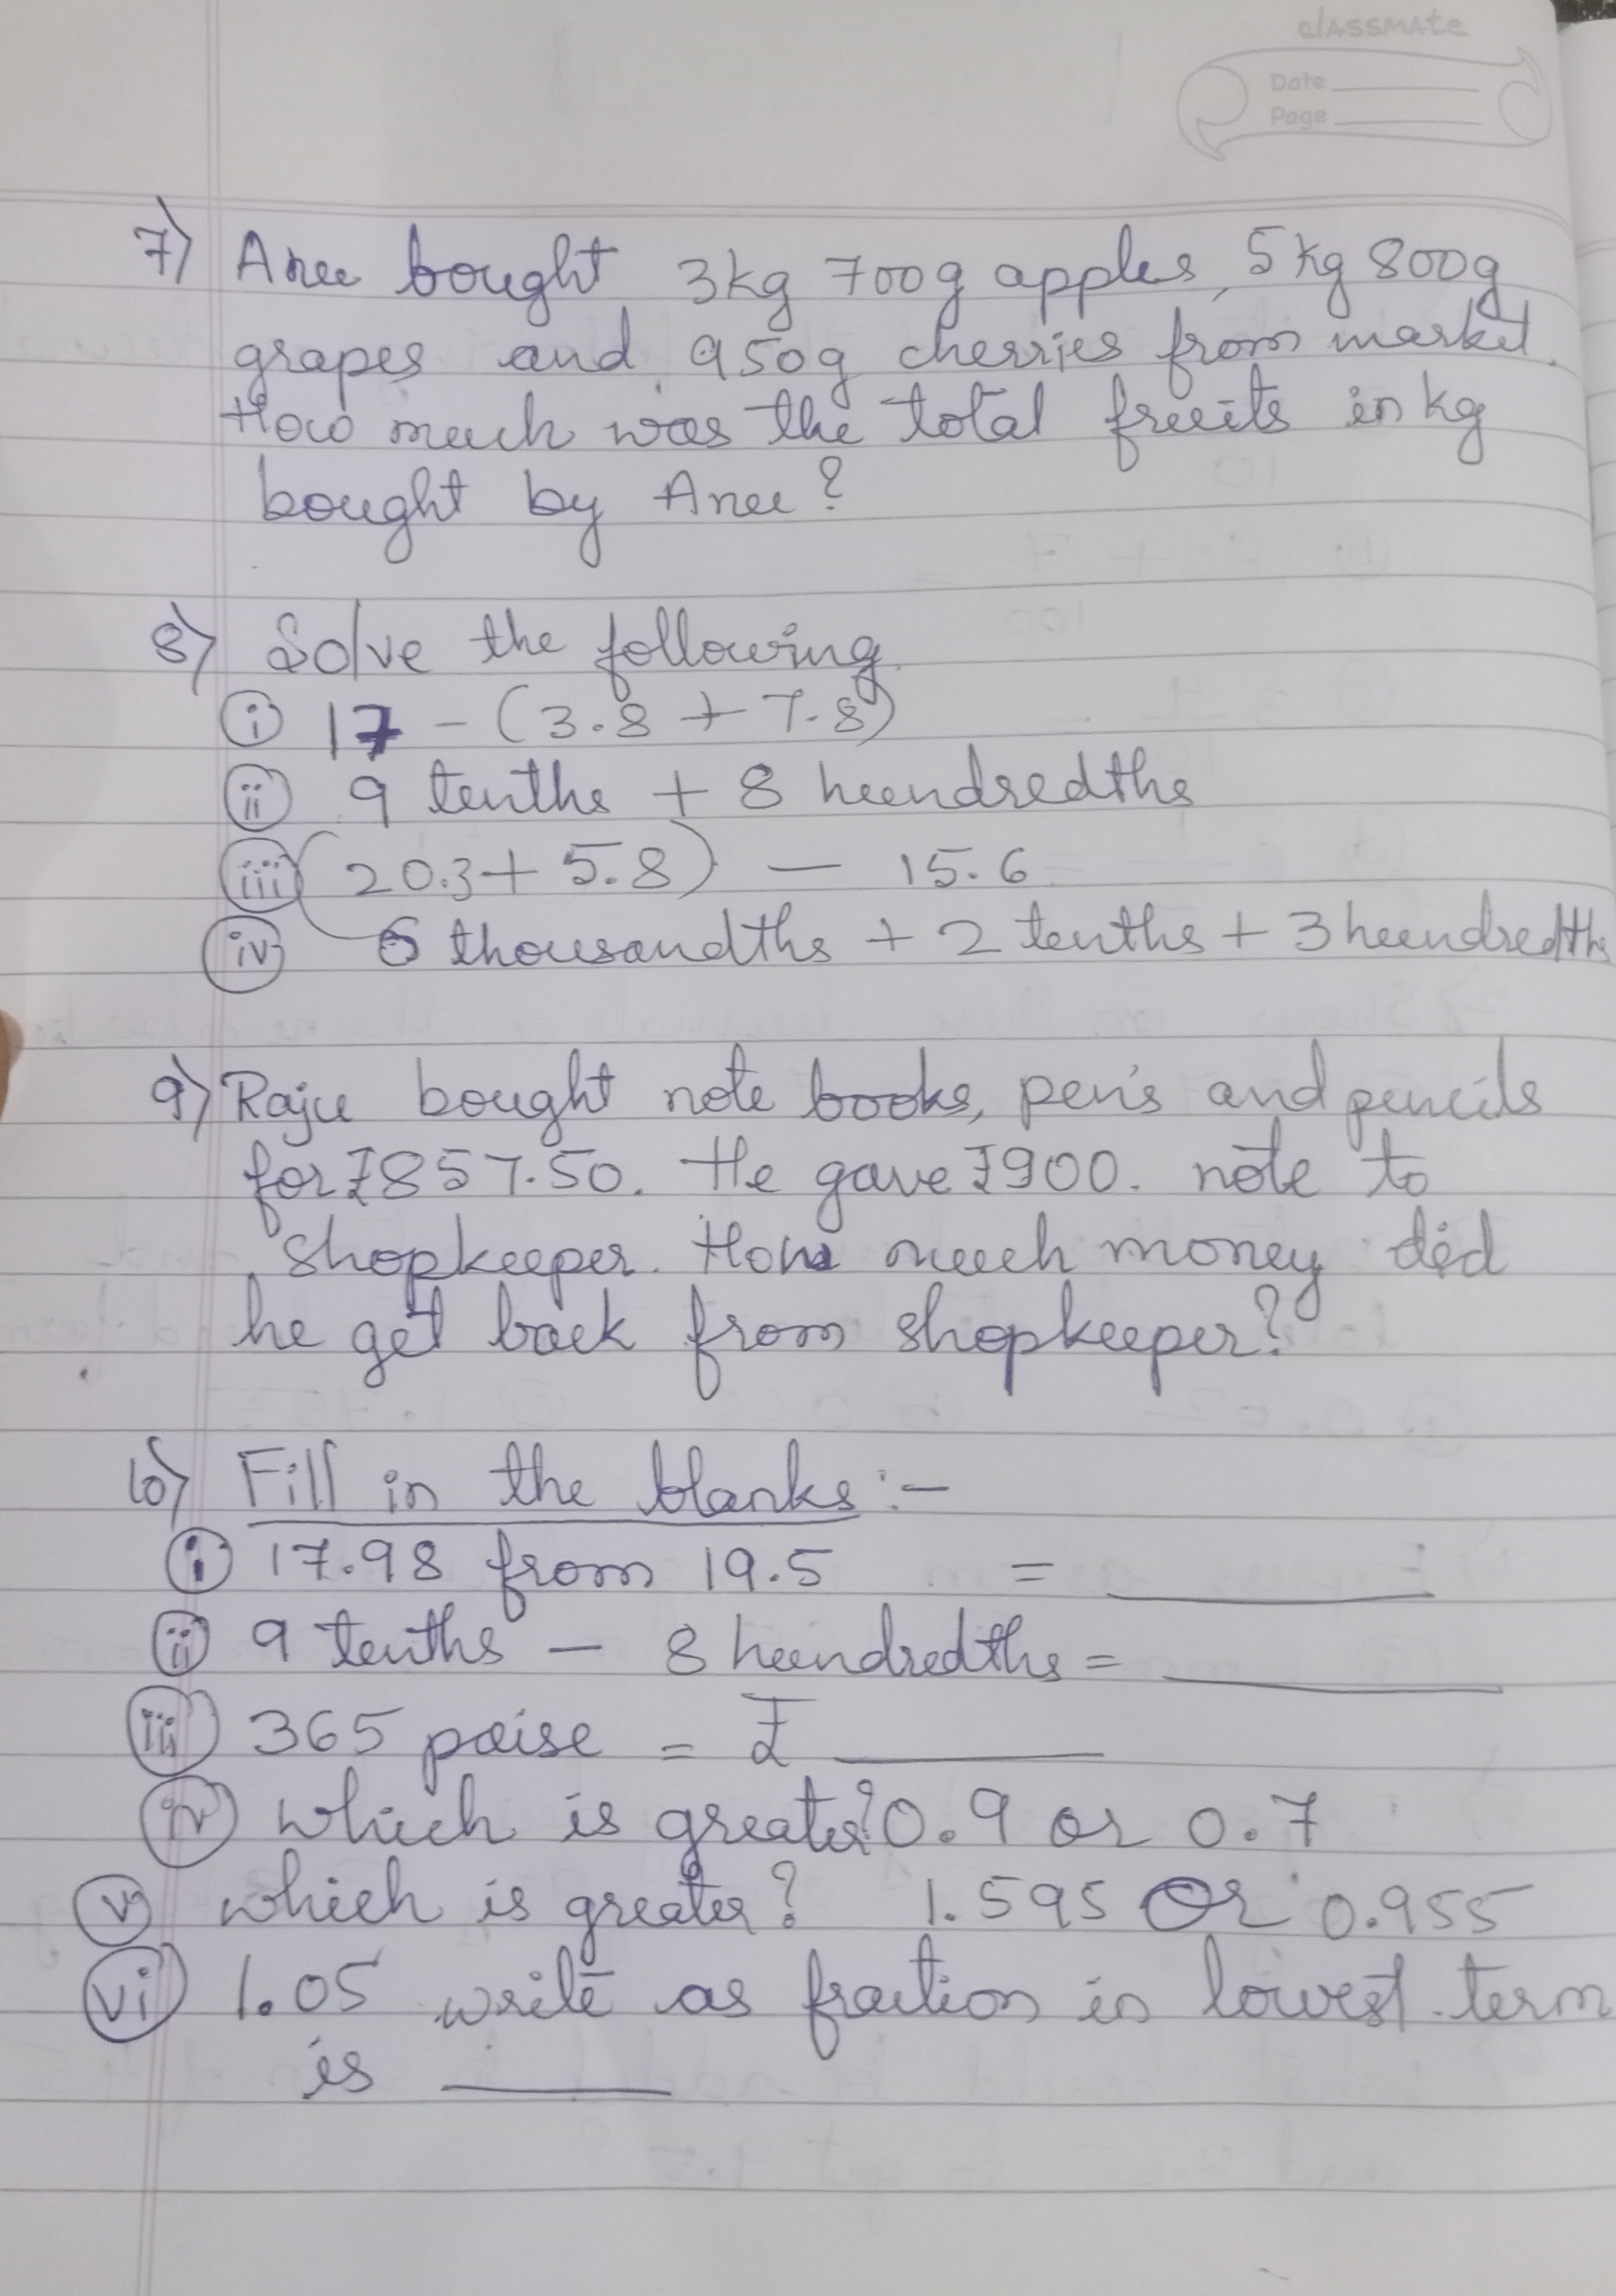 classmate
Date
Page
7) Anu bought 3kg 700g apples, 5kg 800g
grapes and 950g cherries from market.
How much was the total fruits in kg
bought by Anu?
8) Solve the following.
(i) 17 - (3.8 + 7.8)
(ii) 9 tenths + 8 hundredths
(iii) (20.3 + 5.8) - 15.6
(iv) 6 thousandths + 2 tenths + 3 hundredths
9) Raju bought note books, pen's and pencils
for ₹857.50. He gave ₹900. note to
shopkeeper. How much money did
he get back from shopkeeper?
10) Fill in the blanks :-
(i) 17.98 from 19.5 = ________
(ii) 9 tenths - 8 hundredths = ________
(iii) 365 paise = ₹ ________
(iv) which is greater? 0.9 or 0.7
(v) which is greater? 1.595 or 0.955
(vi) 1.05 write as fraction in lowest term
is ________